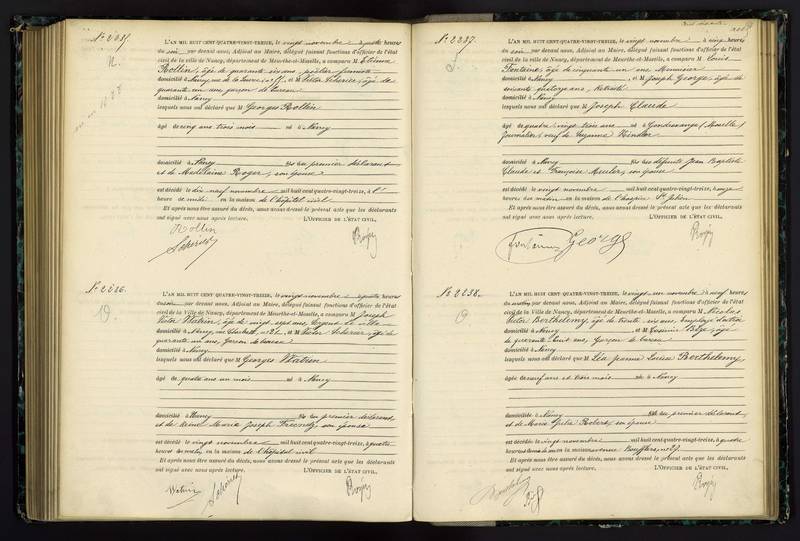 N° 2235.
L'AN MIL HUIT CENT QUATRE-VINGT-TREIZE, le vingt novembre à quatre heures
du soir par devant nous, Adjoint au Maire, délégué faisant fonctions d'officier de l'état
civil de la Ville de Nancy, département de Meurthe-et-Moselle, a comparu M Etienne
Rollin, âgé de quarante six ans,
domicilié à Nancy, et Victor Scherier, âgé de
quarante un ans, garçon de bureau
domicilié à Nancy
lesquels nous ont déclaré que M Georges Rollin
âgé de cinq ans trois mois né à Nancy
domicilié à Nancy fils du premier déclarant
et de Madeleine Roger, son épouse
est décédé le dix neuf novembre mil huit cent quatre-vingt-treize, à
heure de midi en la maison de l'hôpital civil
Et après nous être assuré du décès, nous avons dressé le présent acte que les déclarants
ont signé avec nous après lecture. L'OFFICIER DE L'ÉTAT CIVIL,
Rollin
N° 2236.
L'AN MIL HUIT CENT QUATRE-VINGT-TREIZE, le vingt novembre à quatre heures
du soir par devant nous, Adjoint au Maire, délégué faisant fonctions d'officier de l'état
civil de la Ville de Nancy, département de Meurthe-et-Moselle, a comparu M Joseph
Victor Watrin, âgé de vingt sept ans, sergent de ville
domicilié à Nancy, et Victor Scherier, âgé de
quarante un ans, garçon de bureau
domicilié à Nancy
lesquels nous ont déclaré que M Georges Watrin
âgé de quatre ans un mois né à Nancy
domicilié à Nancy fils du premier déclarant
et de Reine Marie Joseph son épouse
est décédé le vingt novembre mil huit cent quatre-vingt-treize, à quatre
heures du matin, en la maison de l'hôpital civil
Et après nous être assuré du décès, nous avons dressé le présent acte que les déclarants
ont signé avec nous après lecture. L'OFFICIER DE L'ÉTAT CIVIL,
Watrin
N° 2237.
L'AN MIL HUIT CENT QUATRE-VINGT-TREIZE, le vingt novembre à cinq heures
du soir par devant nous, Adjoint au Maire, délégué faisant fonctions d'officier de l'état
civil de la Ville de Nancy, département de Meurthe-et-Moselle, a comparu M Louis
Fontaine, âgé de cinquante un ans, Menuisier
domicilié à Nancy et M Joseph George, âgé de
soixante quatorze ans, Retraité
domicilié à Nancy
lesquels nous ont déclaré que M Joseph Claude
âgé de quatre vingt trois ans né à Gondrexange (Moselle)
Journalier, veuf de Suzanne
domicilié à Nancy fils des défunts Jean Baptiste
Claude et Françoise Muller, son épouse
est décédé le vingt novembre mil huit cent quatre-vingt-treize, à onze
heures du matin en la maison de l'hospice St Julien
Et après nous être assuré du décès, nous avons dressé le présent acte que les déclarants
ont signé avec nous après lecture. L'OFFICIER DE L'ÉTAT CIVIL,
Fontaine George
N° 2238.
L'AN MIL HUIT CENT QUATRE-VINGT-TREIZE, le vingt un novembre à neuf heures
du matin par devant nous, Adjoint au Maire, délégué faisant fonctions d'officier de l'état
civil de la Ville de Nancy, département de Meurthe-et-Moselle, a comparu M Nicolas
Victor Berthelemy, âgé de trente six ans, employé
domicilié à Nancy et M âgé
de quarante huit ans, Garçon de bureau
domicilié à Nancy
lesquels nous ont déclaré que M Léa Jeanne Louise Berthelemy
âgée de neuf ans et trois mois née à Nancy
domicilié à Nancy fille du premier déclarant
et de Marie Julie Robert, son épouse
est décédée le vingt novembre mil huit cent quatre-vingt-treize, à quatre
heures en la maison avenue Boufflers,
Et après nous être assuré du décès, nous avons dressé le présent acte que les déclarants
ont signé avec nous après lecture. L'OFFICIER DE L'ÉTAT CIVIL,